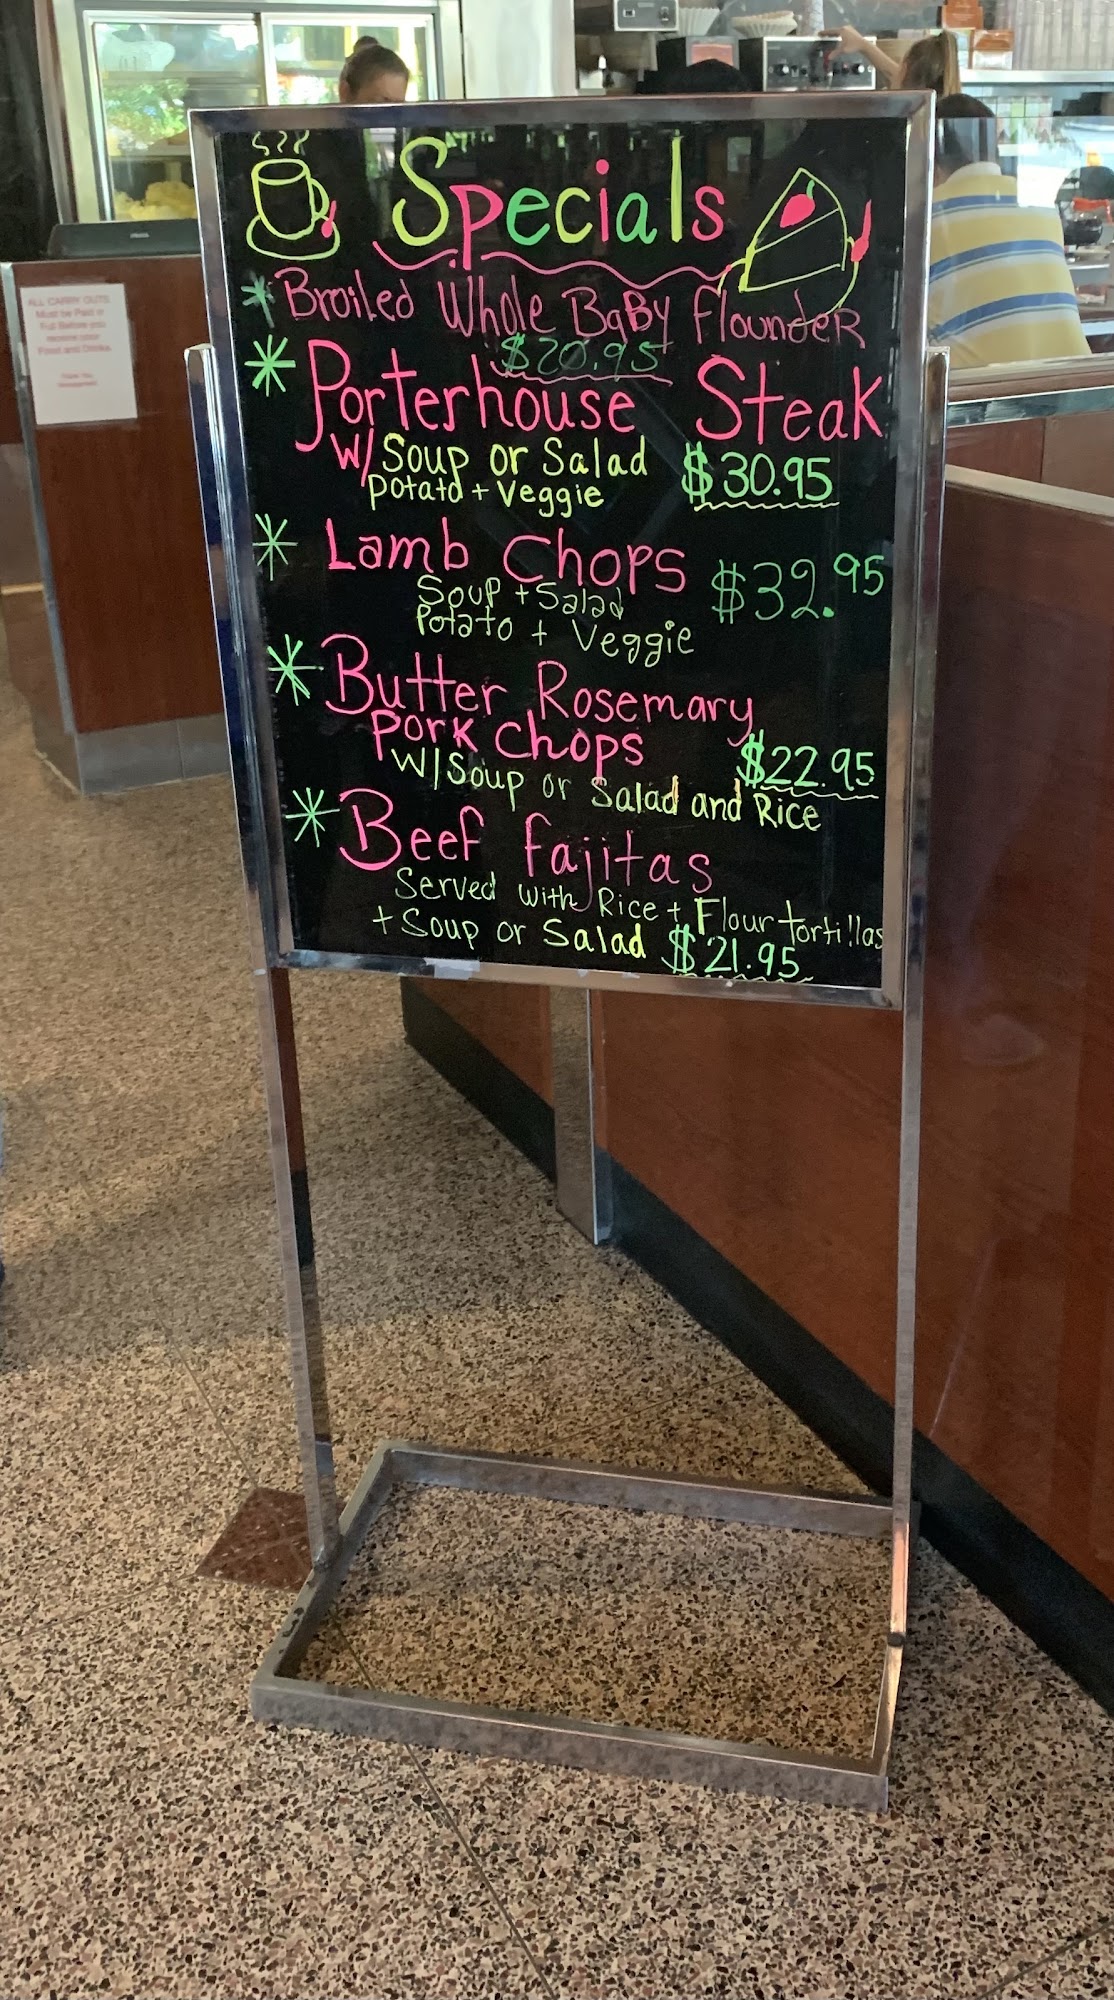 Specials
* Broiled Whole BaBy FloundeR
$20.95
* Porterhouse Steak
W/ Soup or Salad $30.95
potato + Veggie
* Lamb Chops $32.95
Soup + Salad
Potato + Veggie
* Butter Rosemary
Pork Chops $22.95
W/ Soup or Salad and Rice
* Beef Fajitas
Served with Rice + Flour tortillas
+ Soup or Salad $21.95
ALL CARRY OUTS
Must be Paid in
Full Before you
receive your
Food and Drinks.
Thank You
Management